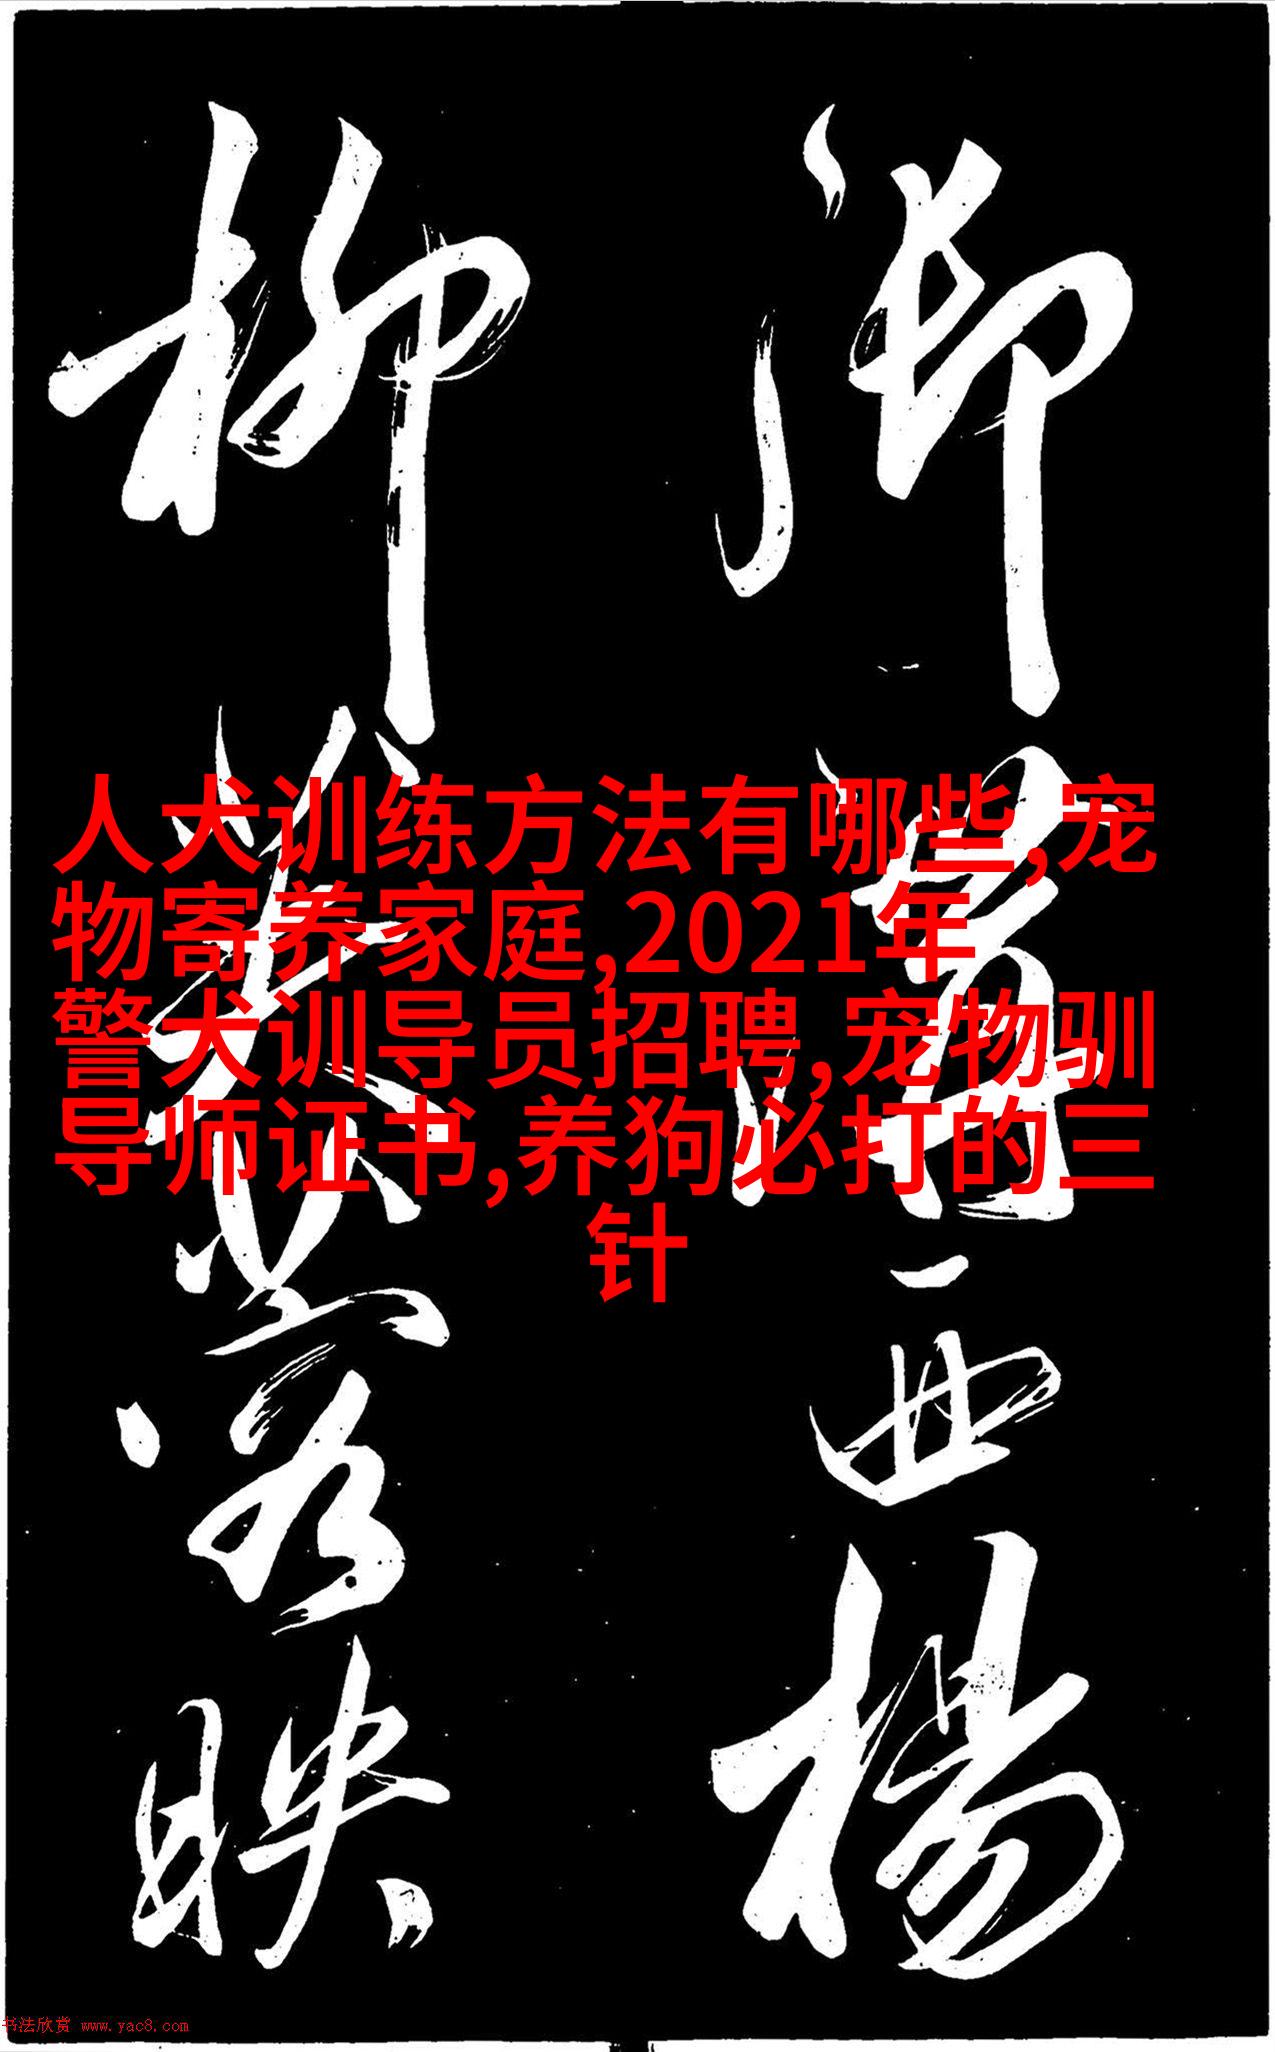 人犬训练方法有哪些,宠
物寄养家庭,2021年
警犬训导员招聘,宠物驯
导师证书,养狗必打的三
针
西楊
柳
落映
书法欣赏 www.yac8.com